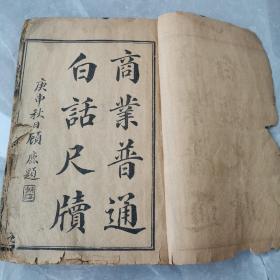 商業普通
白話尺牘
庚申秋日顧廉題